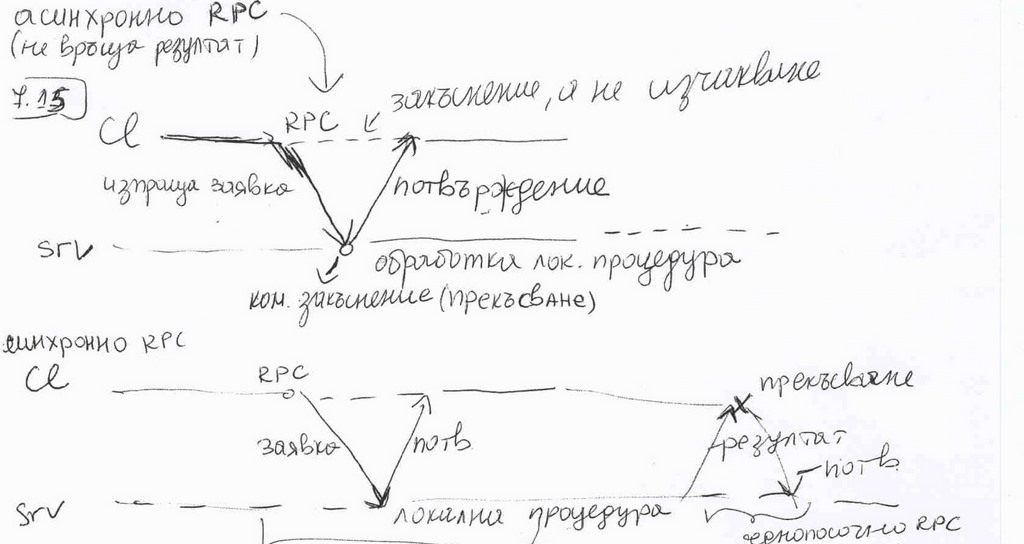 асинхронно RPC
(не връща резултат)
7.15
закъснение, а не изчакване
Cl
RPC
изпраща заявка
потвърждение
srv
обработка лок. процедура
ком. закъснение (прекъсване)
синхронно RPC
Cl
RPC
прекъсване
заявка
потв.
резултат
потв.
srv
локална процедура
еднопосочно RPC